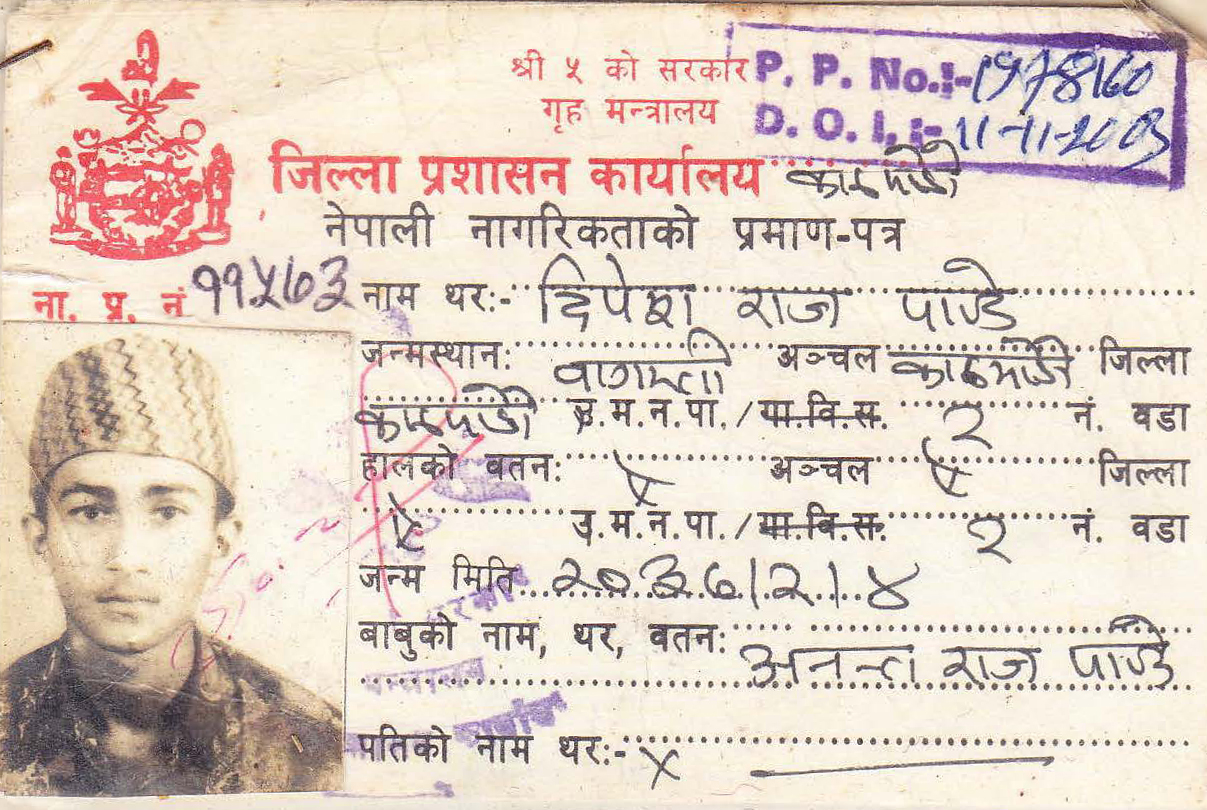 श्री ५ को सरकार
गृह मन्त्रालय
P. P. No.:- 1978160
D. O. I. :- 11-11-2003
जिल्ला प्रशासन कार्यालय काठमाडौं
नेपाली नागरिकताको प्रमाण-पत्र
ना. प्र. नं ११५७३
नाम थर:- दिपेश राज पाण्डे
जन्मस्थान: वागमती अञ्चल काठमाडौं जिल्ला
काठमाडौं उ.म.न.पा./गा.वि.स. २ नं. वडा
हालको वतन: ऐ अञ्चल ऐ जिल्ला
ऐ उ.म.न.पा./गा.वि.स. २ नं. वडा
जन्म मिति २०३७।२।४
बाबुको नाम, थर, वतन: अनन्त राज पाण्डे
पतिको नाम थर:- x